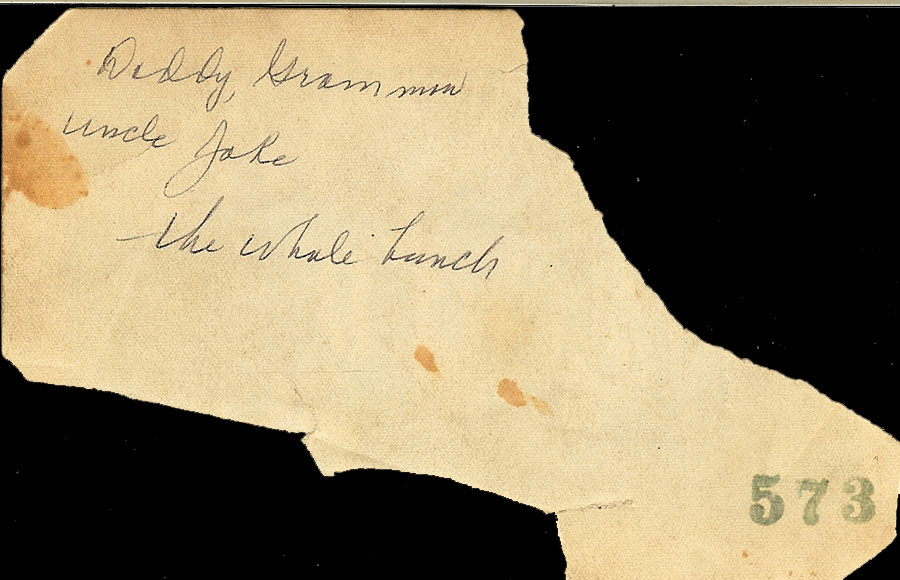 Daddy, Grammaw
uncle Jake
the whole bunch
573